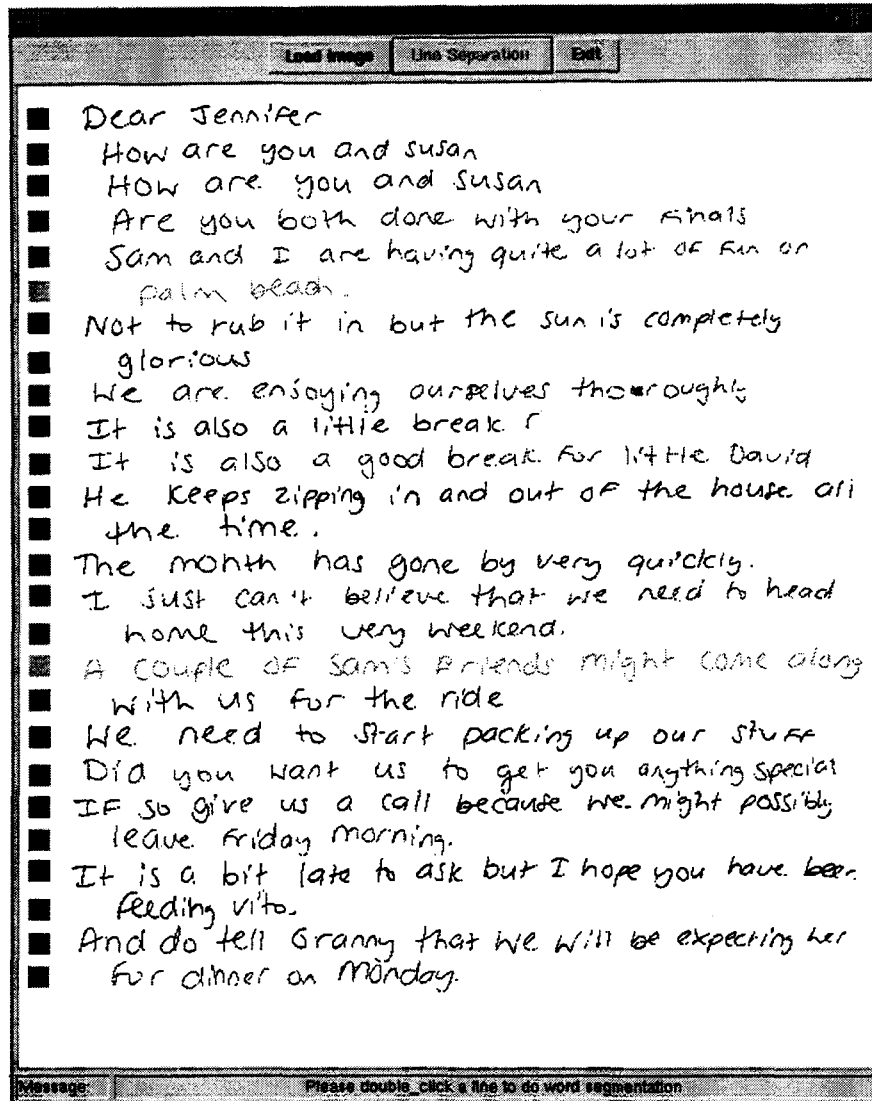 Load Image Line Separation Exit
Dear Jennifer
How are you and susan
How are you and susan
Are you both done with your finals
Sam and I are having quite a lot of fun on
palm beach.
Not to rub it in but the sun is completely
glorious
We are enjoying ourselves thoroughly
It is also a little break f
It is also a good break for little David
He keeps zipping in and out of the house all
the time.
The month has gone by very quickly.
I just can't believe that we need to head
home this very weekend.
A couple of Sam's friends might come along
with us for the ride
We need to start packing up our stuff
Did you want us to get you anything special
If so give us a call because we might possibly
leave Friday morning.
It is a bit late to ask but I hope you have been
feeding vito.
And do tell Granny that we will be expecting her
for dinner on Monday.
Message: Please double_click a line to do word segmentation